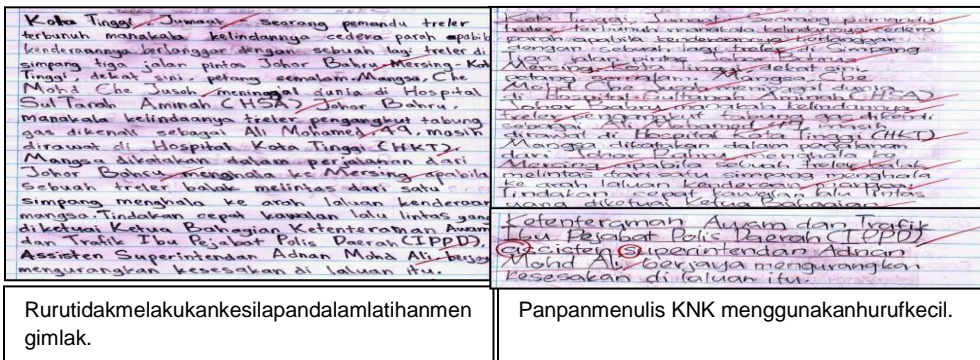 Kota Tinggi, Jumaat: Seorang pemandu treler
terbunuh manakala kelindannya cedera parah apabil
kenderaannya berlanggar dengan sebuah lagi treler di
simpang tiga jalan pintas Johor Bahru, Mersing-Kota
Tinggi, dekat sini, petang semalam. Mangsa, Che
Mohd Che Jusoh meninggal dunia di Hospital
Sul Tanah Aminah (HSA) Johor Bahru,
manakala kelindaanya treler pengangkut tabung
gas dikenali sebagai Ali Mohamed, 49, masih
dirawat di Hospital Kota Tinggi (HKT).
Mangsa dikatakan dalam perjalanan dari
Johor Bahru menghala ke Mersing apabila
sebuah treler balak melintas dari satu
simpang menghala ke arah laluan kenderaan
mangsa. Tindakan cepat kawalan lalu lintas yang
diketuai Ketua Bahagian Ketenteraman Awam
dan Trafik Ibu Pejabat Polis Daerah (IPPD),
Assisten Superintendan Adnan Mohd Ali, berjaya
mengurangkan kesesakan di laluan itu.
Rurutidakmelakukankesilapandalamlatihanmen
gimlak.
Kota Tinggi, Jumaat: Seorang pemandu
treler terbunuh manakala kelindannya cedera
parah apabila kenderaannya berlanggar
dengan sebuah lagi treler di Simpang
tiga jalan pintas Johor Bahru,
Mersing-Kota Tinggi, dekat sini,
petang semalam. Mangsa, Che
Mohd Che Jusoh meninggal dunia
di Hospital Sultanah Aminah (HSA)
Johor Bahru manakala kelindannya
treler pengangkut tabung gas dikenali
sebagai Ali Mohamed 49, masih
dirawat di Hospital Kota Tinggi (HKT)
Mangsa dikatakan dalam perjalanan
dari Johor Bahru menghala ke
Mersing apabila sebuah treler balak
melintas dari satu simpang menghala
ke arah laluan kenderaan mangsa.
Tindakan cepat kawalan lalu lintas
yang diketuai Ketua Bahagian
Ketenteraman Awam dan Trafik
Ibu Pejabat Polis Daerah (IPPD)
assisten superintendan Adnan
Mohd Ali, berjaya mengurangkan
kesesakan di laluan itu.
Panpanmenulis KNK menggunakanhurufkecil.